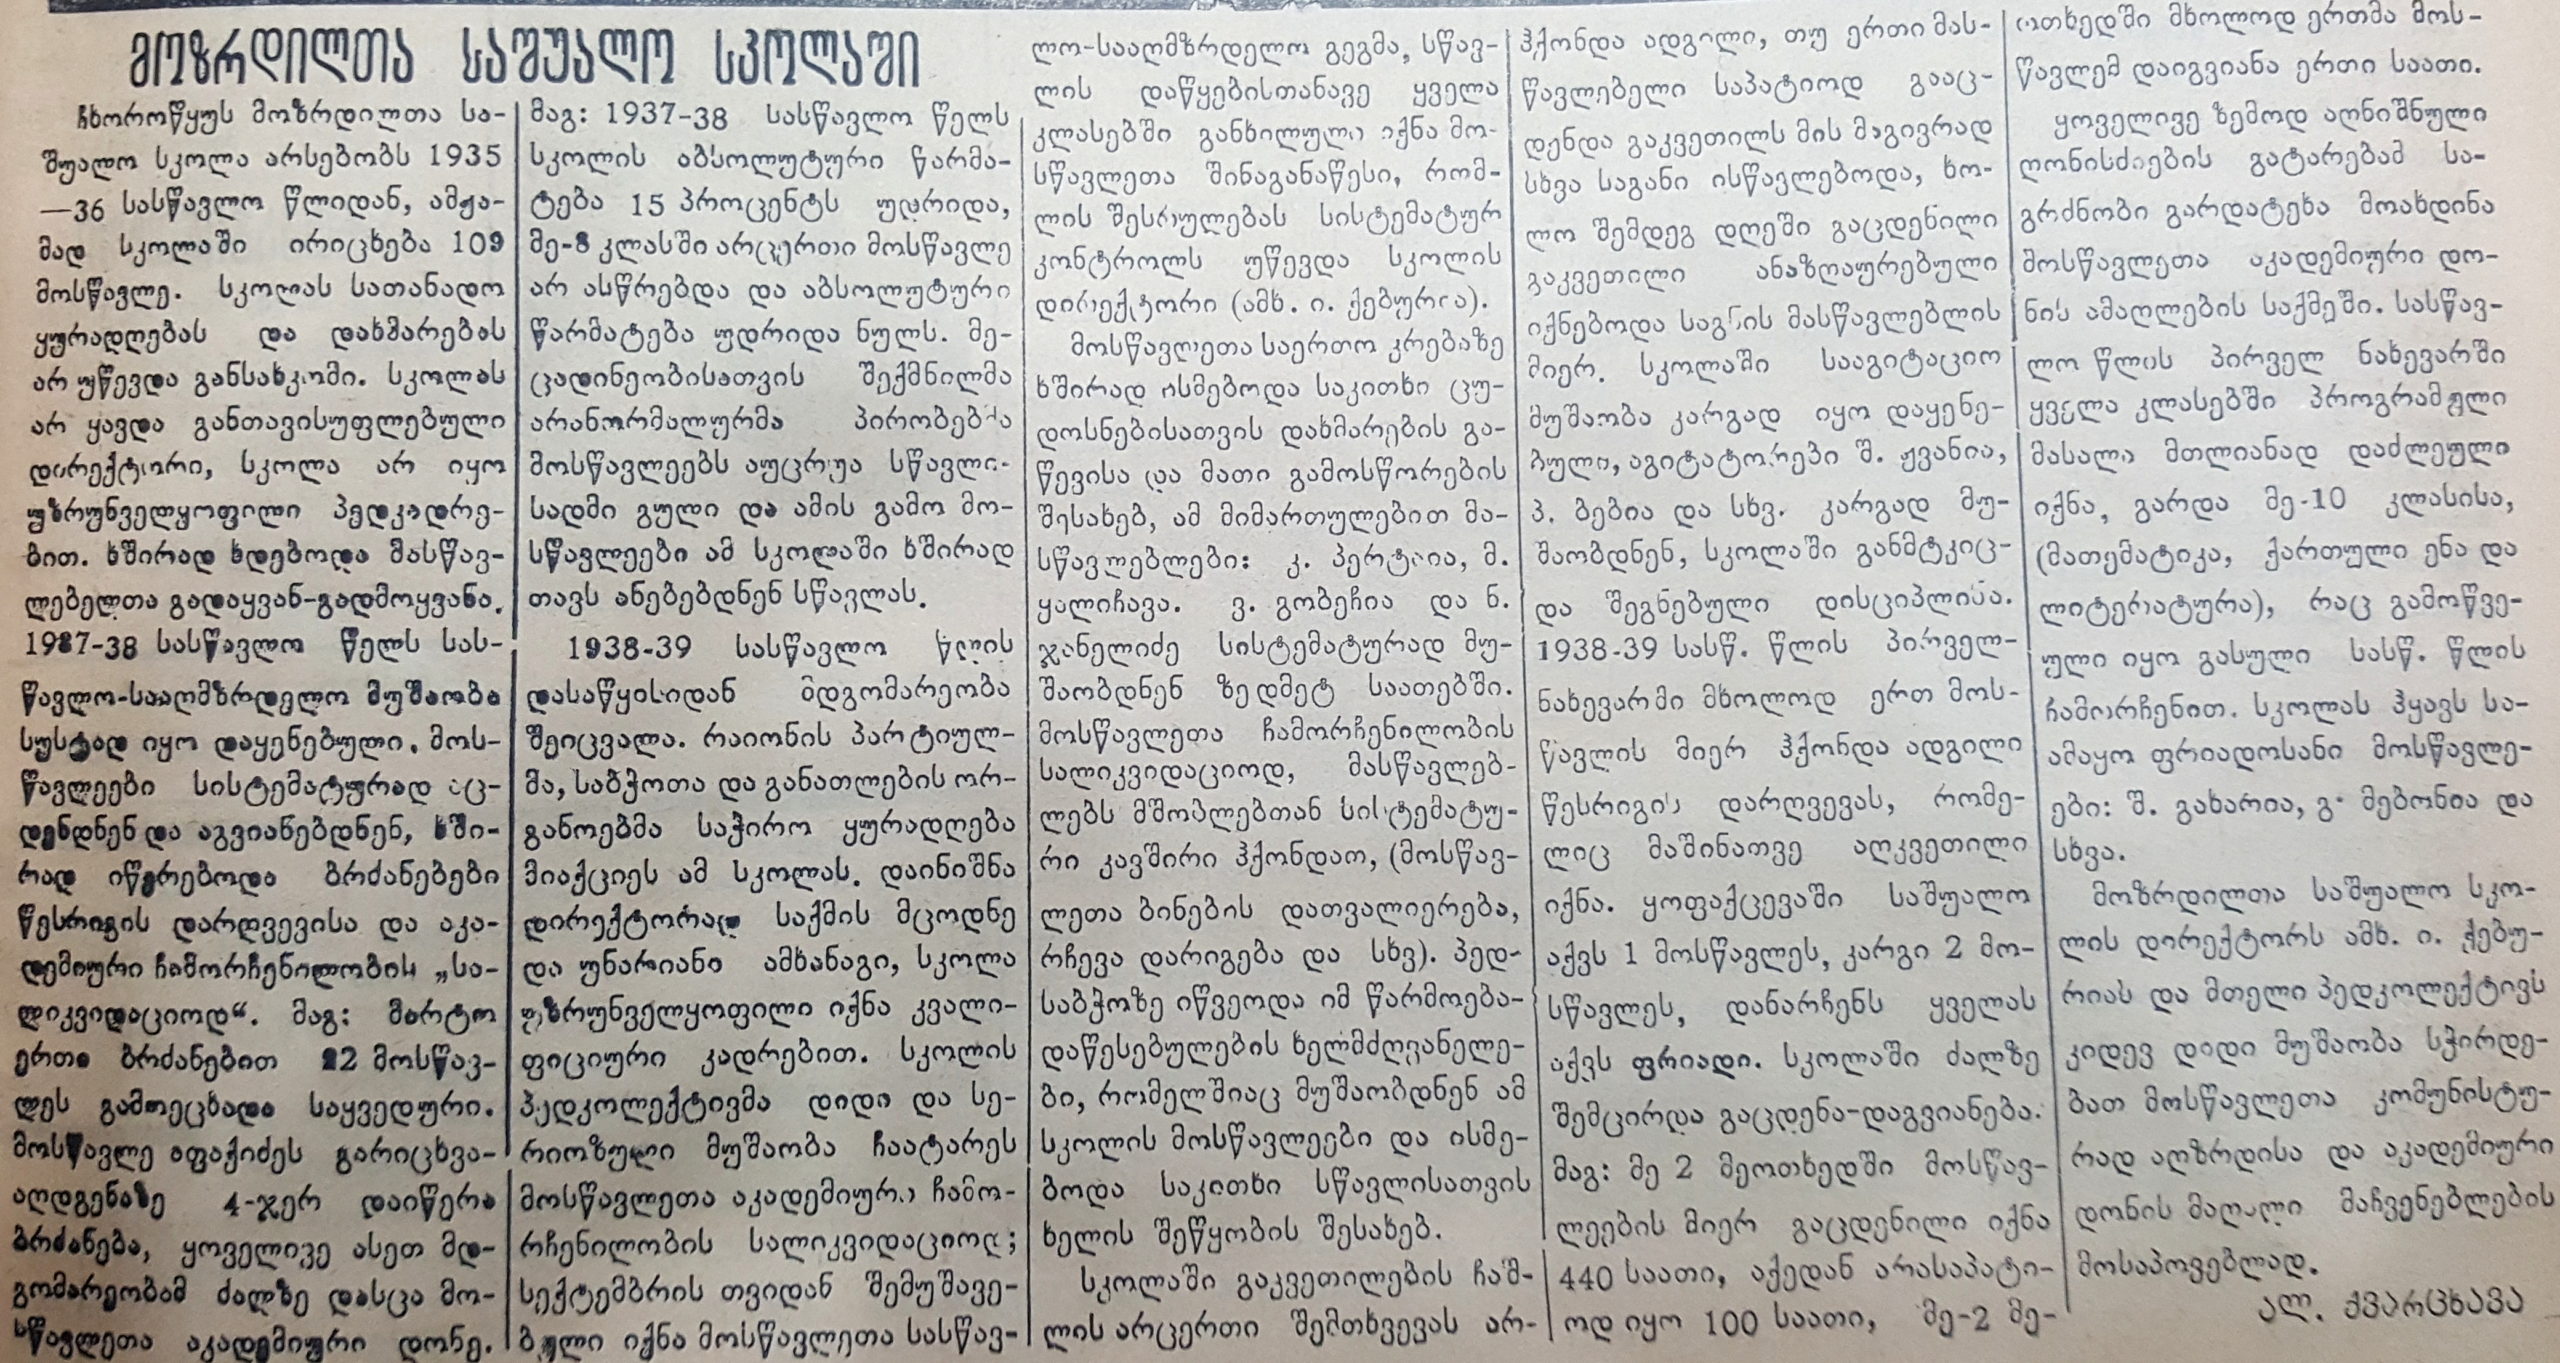 მოზრდილთა საშუალო სკოლაში
ჩხოროწყუს მოზრდილთა სა-
შუალო სკოლა არსებობს 1935
—36 სასწავლო წლიდან, ამჟა-
მად სკოლაში ირიცხება 109
მოსწავლე. სკოლას სათანადო
ყურადღებას და დახმარებას
არ უწევდა განსახკომი. სკოლას
არ ყავდა განთავისუფლებული
დირექტორი, სკოლა არ იყო
უზრუნველყოფილი პედკადრე-
ბით. ხშირად ხდებოდა მასწავ-
ლებელთა გადაყვან-გადმოყვანა.
1937-38 სასწავლო წელს სას-
წავლო-სააღმზრდელო მუშაობა
სუსტად იყო დაყენებული. მოს-
წავლეები სისტემატურად აც-
დენდნენ და აგვიანებდნენ, ხში-
რად იწერებოდა ბრძანებები
წესრიგის დარღვევისა და აკა-
დემიური ჩამორჩენილობის „სა-
ლიკვიდაციოდ“. მაგ: მარტო
ერთი ბრძანებით 22 მოსწავ-
ლეს გამოეცხადა საყვედური.
მოსწავლე აფაქიძეს გარიცხვა-
აღდგენაზე 4-ჯერ დაიწერა
ბრძანება, ყოველივე ასეთ მდ-
გომარეობამ ძალზე დასცა მო-
სწავლეთა აკადემიური დონე.
მაგ: 1937-38 სასწავლო წელს
სკოლის აბსოლუტური წარმა-
ტება 15 პროცენტს უდრიდა,
მე-8 კლასში არცერთი მოსწავლე
არ ასწრებდა და აბსოლუტური
წარმატება უდრიდა ნულს. მე-
ცადინეობისათვის შექმნილმა
არანორმალურმა პირობებმა
მოსწავლეებს აუცრუა სწავლი-
სადმი გული და ამის გამო მო-
სწავლეები ამ სკოლაში ხშირად
თავს ანებებდნენ სწავლას.
1938-39 სასწავლო წლის
დასაწყისიდან მდგომარეობა
შეიცვალა. რაიონის პარტიულ-
მა, საბჭოთა და განათლების ორ-
განოებმა საჭირო ყურადღება
მიაქციეს ამ სკოლას. დაინიშნა
დირექტორად საქმის მცოდნე
და უნარიანი ამხანაგი, სკოლა
უზრუნველყოფილი იქნა კვალი-
ფიციური კადრებით. სკოლის
პედკოლექტივმა დიდი და სე-
რიოზული მუშაობა ჩაატარეს
მოსწავლეთა აკადემიური ჩამო-
რჩენილობის სალიკვიდაციოდ;
სექტემბრის თვიდან შემუშავე-
ბული იქნა მოსწავლეთა სასწავ-
ლო-სააღმზრდელო გეგმა, სწავ-
ლის დაწყებისთანავე ყველა
კლასებში განხილული იქნა მო-
სწავლეთა შინაგანაწესი, რომ-
ლის შესრულებას სისტემატურ
კონტროლს უწევდა სკოლის
დირექტორი (ამხ. ი. ქებურია).
მოსწავლეთა საერთო კრებაზე
ხშირად ისმებოდა საკითხი ცუ-
დოსნებისათვის დახმარების გა-
წევისა და მათი გამოსწორების
შესახებ, ამ მიმართულებით მა-
სწავლებლები: კ. პერტაია, მ.
ყალიჩავა. ვ. გობეჩია და ნ.
ჯანელიძე სისტემატურად მუ-
შაობდნენ ზედმეტ საათებში.
მოსწავლეთა ჩამორჩენილობის
სალიკვიდაციოდ, მასწავლებ-
ლებს მშობლებთან სისტემატუ-
რი კავშირი ჰქონდათ, (მოსწავ-
ლეთა ბინების დათვალიერება,
რჩევა დარიგება და სხვ). პედ-
საბჭოზე იწვეოდა იმ წარმოება-
დაწესებულების ხელმძღვანელე-
ბი, რომელშიაც მუშაობდნენ ამ
სკოლის მოსწავლეები და ისმე-
ბოდა საკითხი სწავლისათვის
ხელის შეწყობის შესახებ.
სკოლაში გაკვეთილების ჩაშ-
ლის არცერთი შემთხვევას არ-
ჰქონდა ადგილი, თუ ერთი მას-
წავლებელი საპატიოდ გააც-
დენდა გაკვეთილს მის მაგივრად
სხვა საგანი ისწავლებოდა, ხო-
ლო შემდეგ დღეში გაცდენილი
გაკვეთილი ანაზღაურებული
იქნებოდა საგნის მასწავლებლის
მიერ. სკოლაში სააგიტაციო
მუშაობა კარგად იყო დაყენე-
ბული, აგიტატორები შ. ჟვანია,
პ. ბებია და სხვ. კარგად მუ-
შაობდნენ, სკოლაში განმტკიც-
და შეგნებული დისციპლინა.
1938-39 სასწ. წლის პირველ-
ნახევარში მხოლოდ ერთ მოს-
წავლის მიერ ჰქონდა ადგილი
წესრიგის დარღვევას, რომე-
ლიც მაშინათვე აღკვეთილი
იქნა. ყოფაქცევაში საშუალო
აქვს 1 მოსწავლეს, კარგი 2 მო-
სწავლეს, დანარჩენს ყველას
აქვს ფრიადი. სკოლაში ძალზე
შემცირდა გაცდენა-დაგვიანება.
მაგ: მე 2 მეოთხედში მოსწავ-
ლეების მიერ გაცდენილი იქნა
440 საათი, აქედან არასაპატი-
ოდ იყო 100 საათი, მე-2 მე-
ოთხედში მხოლოდ ერთმა მოს-
წავლემ დაიგვიანა ერთი საათი.
ყოველივე ზემოდ აღნიშნული
ღონისძიების გატარებამ სა-
გრძნობი გარდატეხა მოახდინა
მოსწავლეთა აკადემიური დო-
ნის ამაღლების საქმეში. სასწავ-
ლო წლის პირველ ნახევარში
ყველა კლასებში პროგრამული
მასალა მთლიანად დაძლეული
იქნა, გარდა მე-10 კლასისა,
(მათემატიკა, ქართული ენა და
ლიტერატურა), რაც გამოწვე-
ული იყო გასული სასწ. წლის
ჩამორჩენით. სკოლას ჰყავს სა-
ამაყო ფრიადოსანი მოსწავლე-
ები: შ. გახარია, გ. მებონია და
სხვა.
მოზრდილთა საშუალო სკო-
ლის დირექტორს ამხ. ი. ქებუ-
რიას და მთელი პედკოლექტივს
კიდევ დიდი მუშაობა სჭირდე-
ბათ მოსწავლეთა კომუნისტუ-
რად აღზრდისა და აკადემიური
დონის მაღალი მაჩვენებლების
მოსაპოვებლად.
ალ. ქვარცხავა